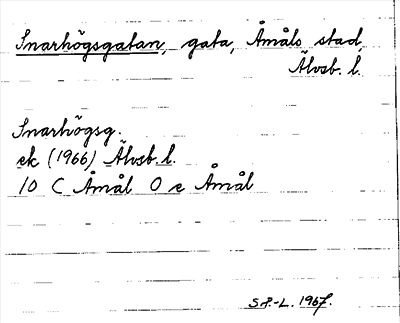 Snarhögsgatan, gata, Åmåls stad,
Älvsb. l.
Snarhögsg.
ek (1966) Älvsb. l.
10 C Åmål O e Åmål
S.P.-L. 1967.